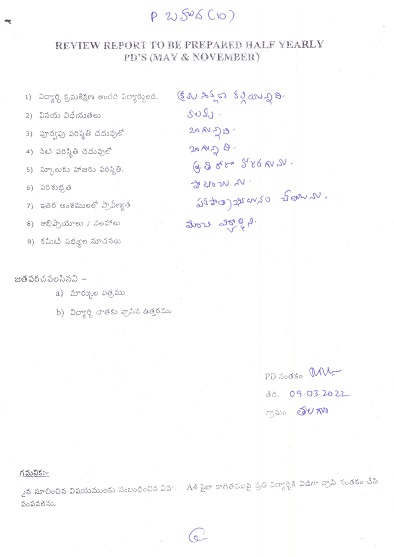 P బహాద (10)
REVIEW REPORT TO BE PREPARED HALF YEARLY
PD'S (MAY & NOVEMBER)
1) విద్యార్థి క్రమశిక్షణ అందరి విద్యార్థులది. క్రమ కల్గియున్నది.
2) వినయ విధేయతలు కలవు
3) పూర్వపు పరిస్థితి చదువులో బాగున్నది.
4) నేటి పరిస్థితి చదువులో బాగున్నది.
5) స్కూలుకు హాజరు పరిస్థితి. ప్రతి రోజు
6) పరిశుభ్రత
7) ఇతర అంశములలో ప్రావీణ్యత చేయును
8) అభిప్రాయాలు / సలహాలు మంచి విద్యార్థిని.
9) కమిటీ సభ్యుల సూచనలు
జతపరచవలసినవి :-
a) మార్కుల పత్రము
b) విద్యార్థి దాతకు వ్రాసిన ఉత్తరము
PD సంతకం
తేది: 09.03.2022
గ్రామం:
గమనిక:-
పైన సూచించిన విషయములకు సంబంధించిన A4 సైజు కాగితముపై ప్రతి విద్యార్థికి విడిగా వ్రాసి సంతకం చేసి
పంపవలెను.